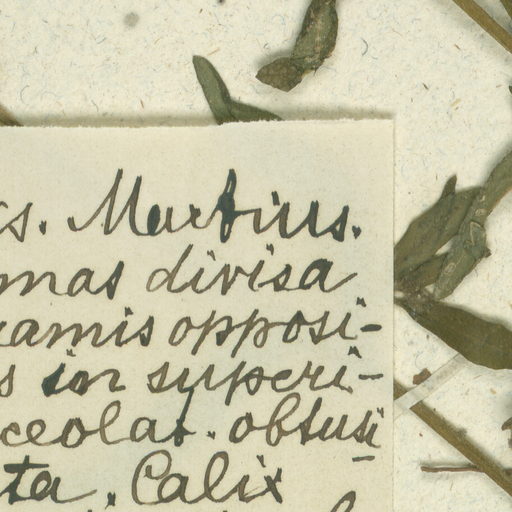 cs. Martius.
mas divisa
ramis opposi-
s in superi-
ceolat. obtusi
ta. Calix